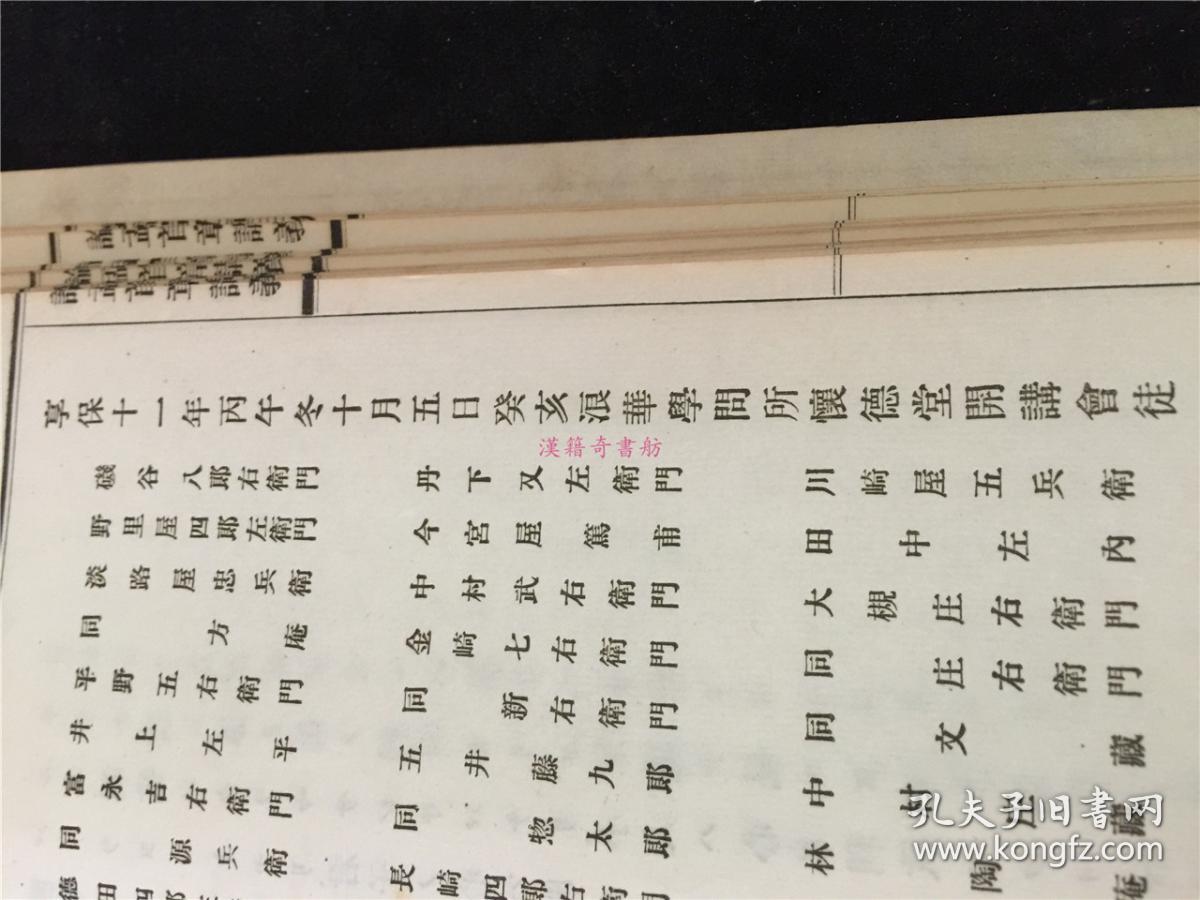 論孟首章講義
論孟首章講義
享保十一年丙午冬十月五日癸亥浪華學問所懷德堂開講會徒
磯谷八郎右衛門 丹下又左衛門 川崎屋五兵衛
野里屋四郎左衛門 今宮屋篤甫 田中左內
淡路屋忠兵衛 中村武右衛門 大槻庄右衛門
同方庵 金崎七右衛門 同庄右衛門
平野五右衛門 同新右衛門 同文藏
井上左平 五井藤九郎 中村庄藏
富永吉右衛門 同惣太郎 林陶庵
同源兵衛 長崎四郎右衛門
德田四郎
漢籍奇書舫
孔夫子旧书网
www.kongfz.com